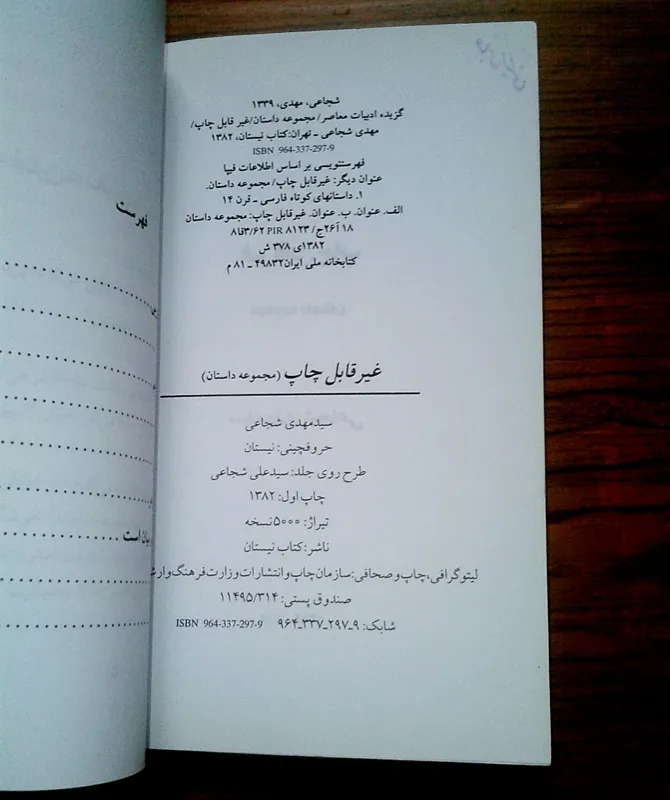 شجاعی، مهدی، ۱۳۳۹
گزیده ادبیات معاصر/ مجموعه داستان/غیر قابل چاپ/
مهدی شجاعی ـ تهران:کتاب نیستان، ۱۳۸۲
ISBN 964-337-297-9
فهرستنویسی بر اساس اطلاعات فیپا
عنوان دیگر: غیرقابل چاپ/ مجموعه داستان.
۱. داستانهای کوتاه فارسی ـ قرن ۱۴
الف. عنوان. ب. عنوان. غیرقابل چاپ: مجموعه داستان
۱۸ آ۲۶ج/ ۸۱۲۳ PIR ۳/۶۲فا۸
۱۳۸۲ی ۳۷۸ ش
کتابخانه ملی ایران۴۹۸۳۲ ـ ۸۱ م
غیرقابل چاپ (مجموعه داستان)
سیدمهدی شجاعی
حروفچینی: نیستان
طرح روی جلد: سیدعلی شجاعی
چاپ اول: ۱۳۸۲
تیراژ: ۵۰۰۰نسخه
ناشر: کتاب نیستان
لیتوگرافی، چاپ و صحافی: سازمان چاپ و انتشارات وزارت فرهنگ و ارش
صندوق پستی: ۱۱۴۹۵/۳۱۴
شابک: ۹ـ۲۹۷ـ۳۳۷ـ۹۶۴ ISBN 964-337-297-9
فهرست
بان است